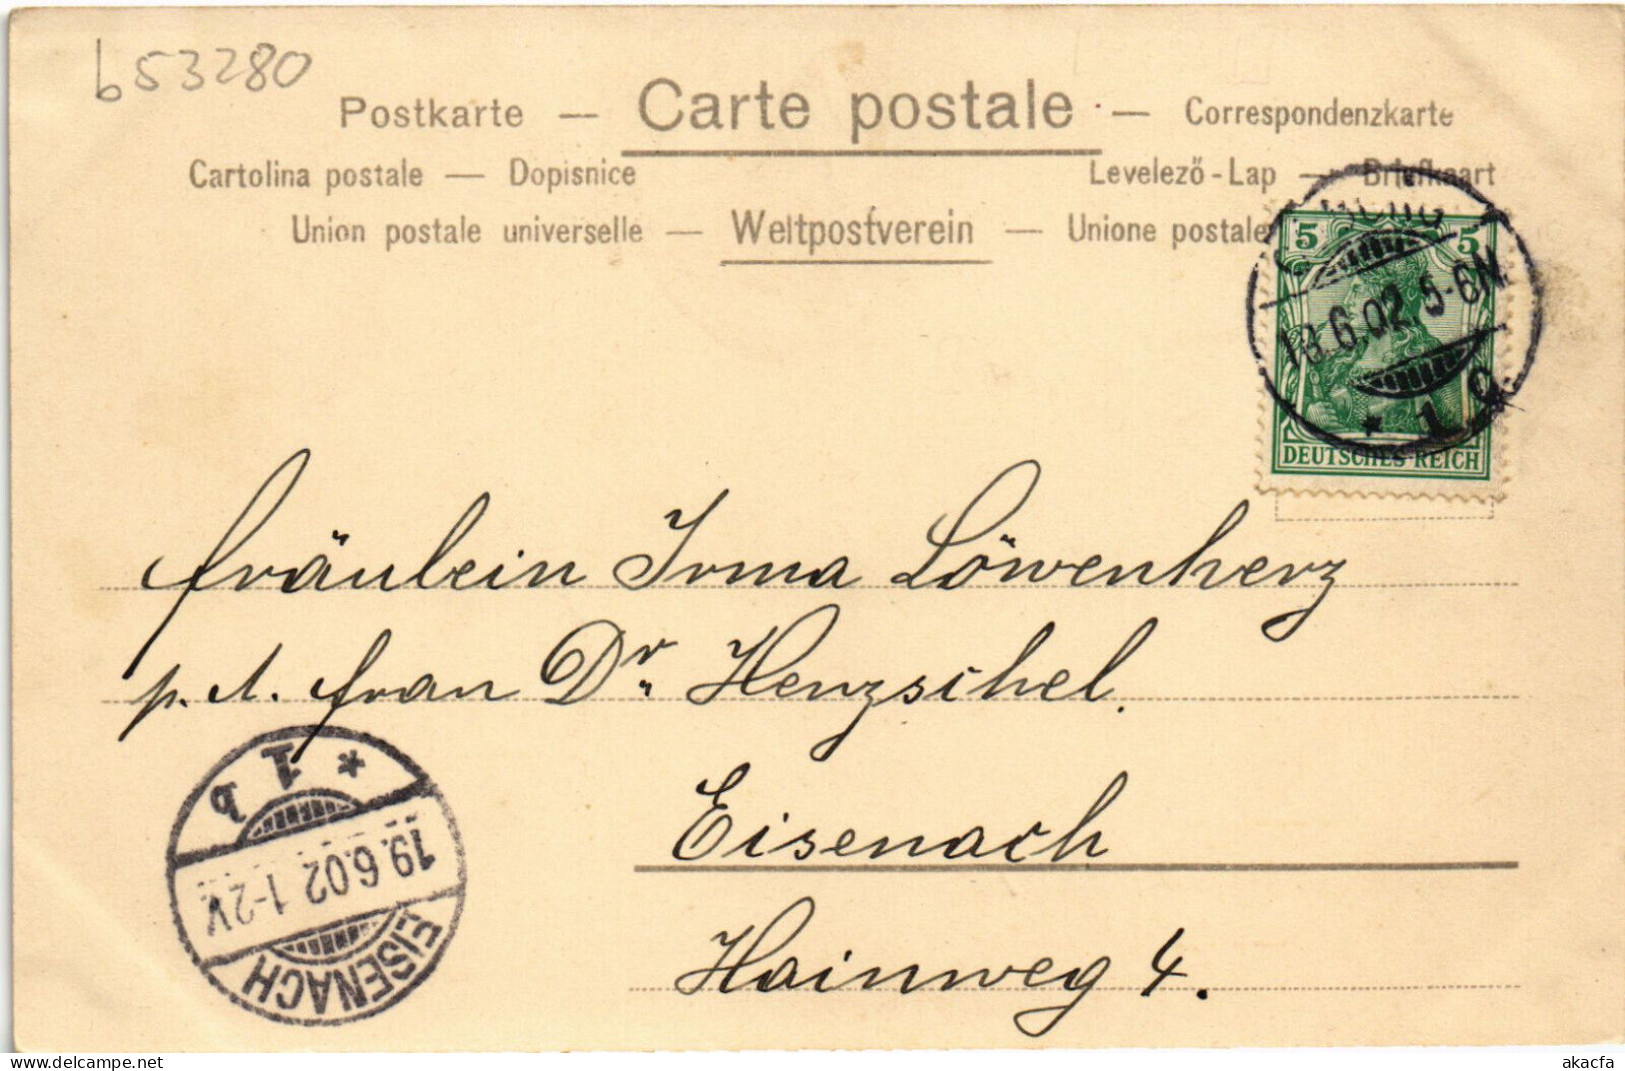 b53280
Postkarte — Carte postale — Correspondenzkarte
Cartolina postale — Dopisnice Levelező-Lap — Briefkaart
Union postale universelle — Weltpostverein — Unione postale
5 5
.6.02. 5-6N.
* 1
DEUTSCHES REICH
Fräulein Irma Löwenherz
p. A. Frau Dr. Henzschel.
Eisenach
Hainweg 4.
* 1 b
19.6.02 1-2V.
EISENACH
www.delcampe.net
akacfa